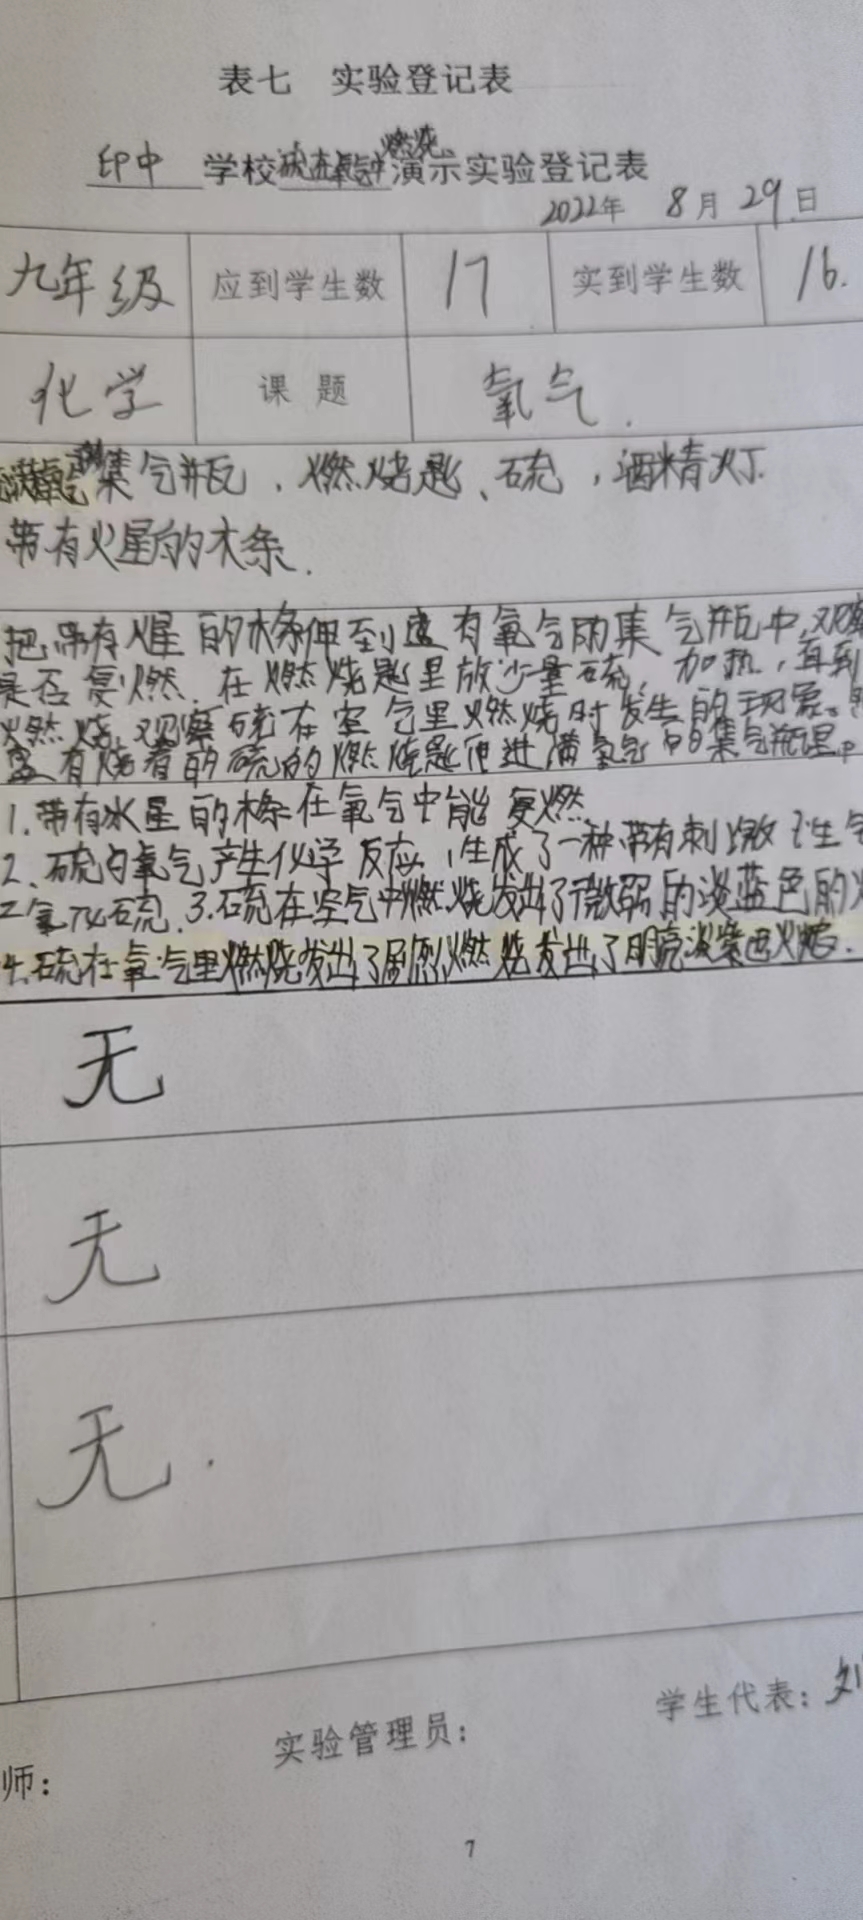 表七 实验登记表
印中 学校硫在氧气中燃烧演示实验登记表
2022年 8月29日
九年级 应到学生数 17 实到学生数 16.
化学 课题 氧气.
集气瓶、燃烧匙、硫,酒精灯
带有火星的木条.
把带有火星的木条伸到盛有氧气的集气瓶中,观察
是否复燃.在燃烧匙里放少量硫,加热,直到
燃烧,观察硫在空气里燃烧时发生的现象。
盛有烧着的硫的燃烧匙伸进满氧气的集气瓶里。
1.带有火星的木条在氧气中能复燃
2.硫与氧气产生化学反应,生成了一种带有刺激性气
二氧化硫.3.硫在空气中燃烧发出了微弱的淡蓝色的火
4.硫在氧气里燃烧发出了剧烈燃烧发出了明亮淡紫色火焰.
无
无
无.
实验管理员: 学生代表:刘
师:
7